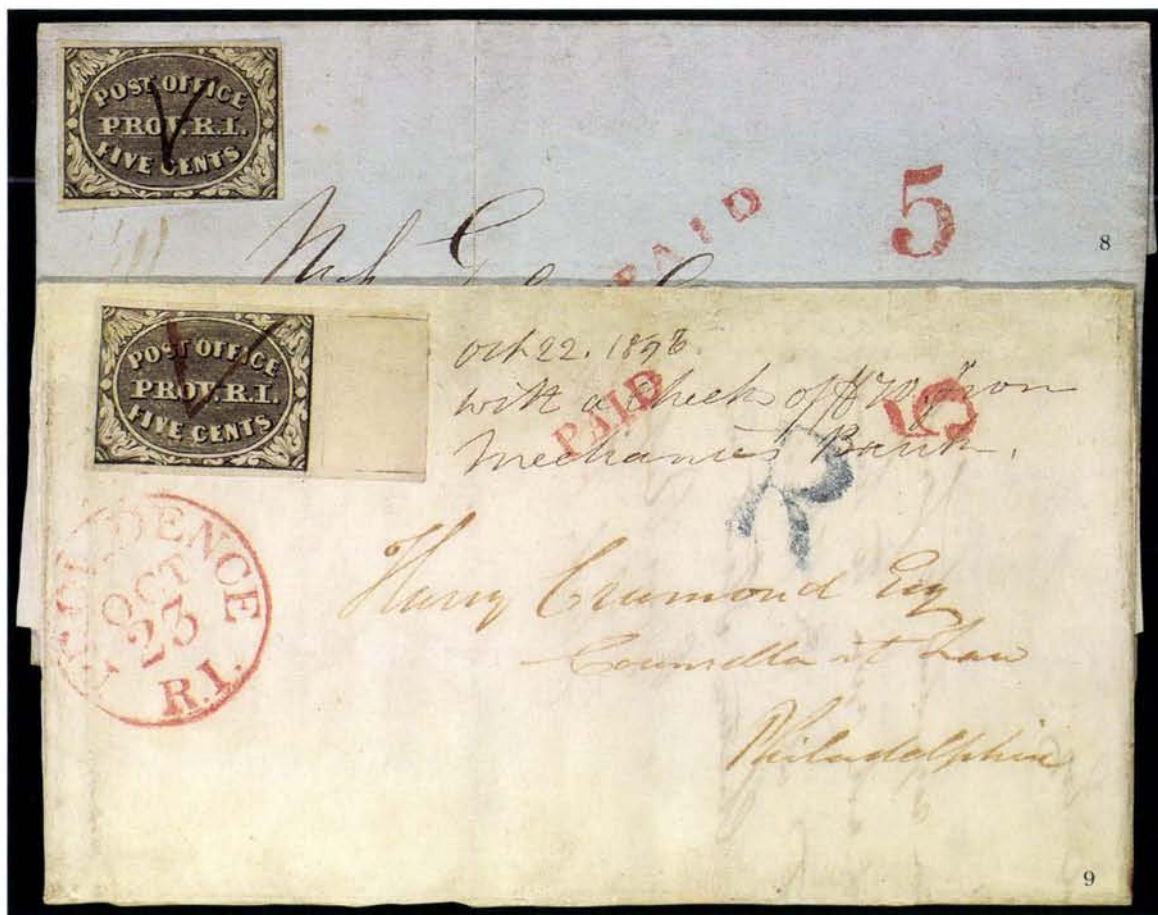 POST OFFICE
PROV. R.I.
FIVE CENTS
PAID
5
8
POST OFFICE
PROV. R.I.
FIVE CENTS
Oct 22. 1846
with a check of $70 on
Mechanics Bank.
PAID
5
R
PROVIDENCE
OCT
23
R.I.
Harry Cramond Esq
Counsellor at Law
Philadelphia
9